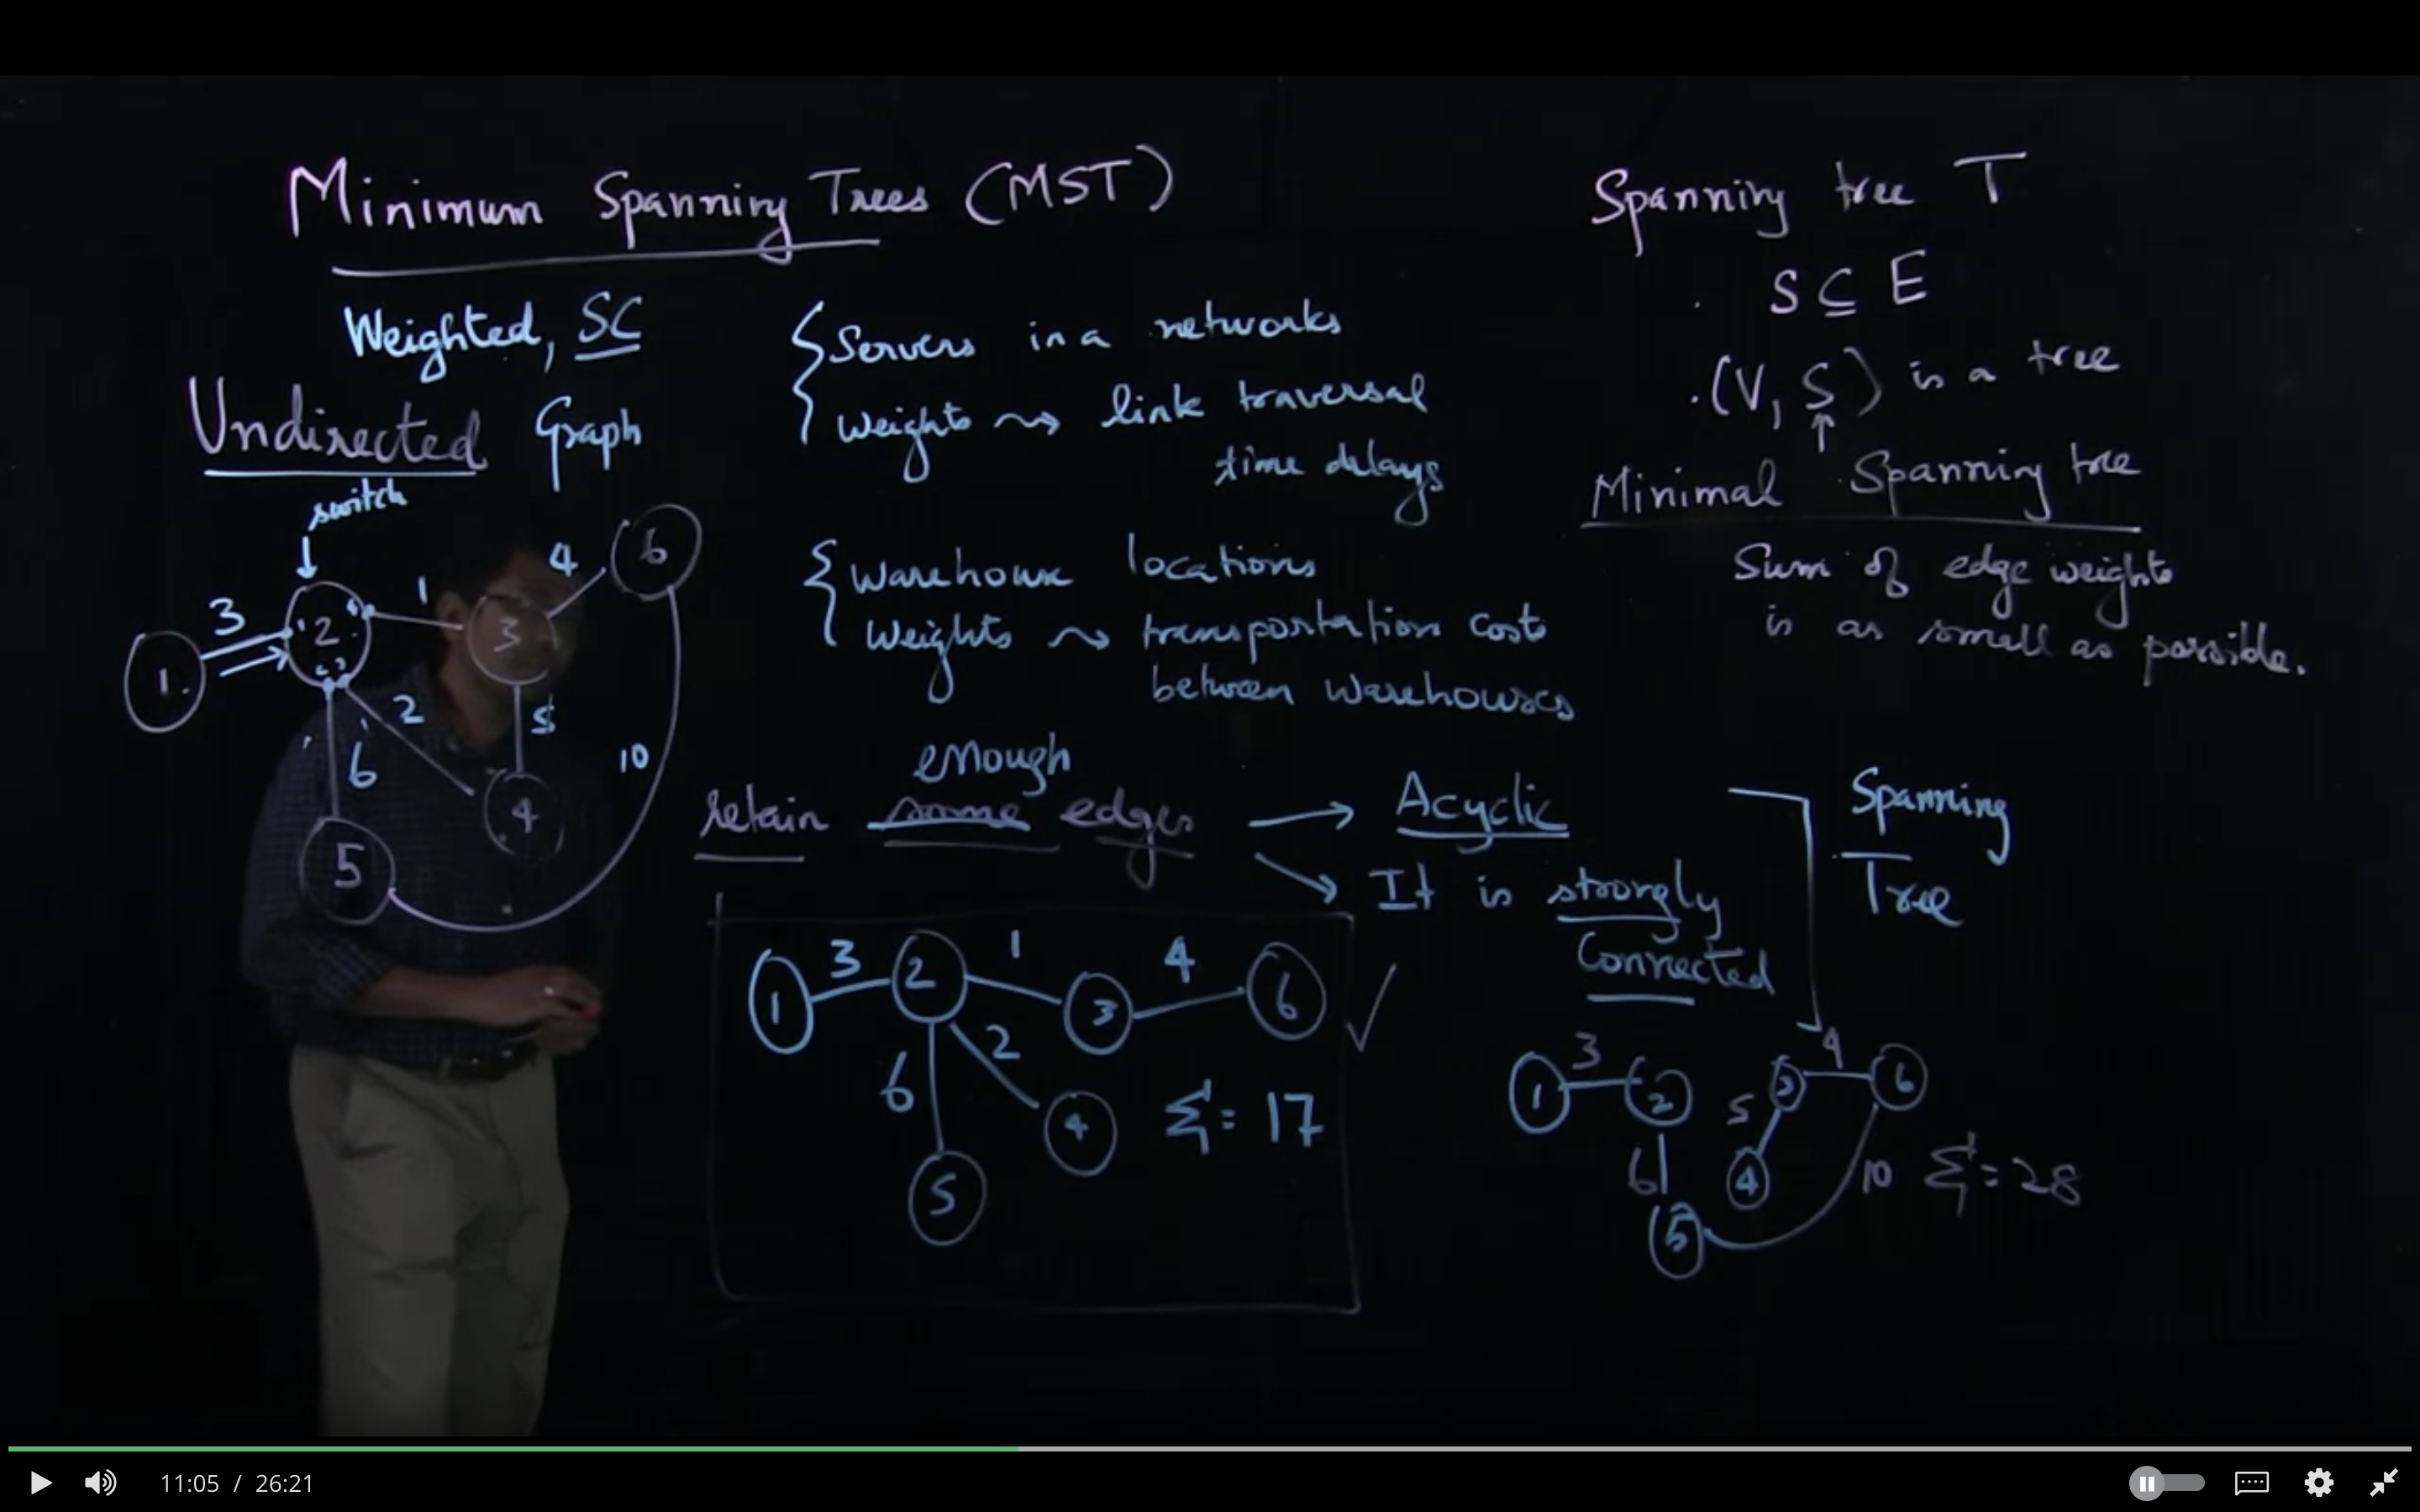 Minimum Spanning Trees (MST)
Weighted, SC
Undirected Graph
switch
3
1
4
6
2
1.
3
5
2
6
4
5
10
{Servers in a networks
Weights ⇝ link traversal
time delays
{Warehouse locations
Weights ⇝ transportation costs
between warehouses
enough
retain some edges → Acyclic
→ It is strongly
Connected
Spanning
Tree
1 3 2 1 3 4 6 ✓
6 2
4 Σ = 17
5
Spanning tree T
. S ⊆ E
.(V, S) is a tree
↑
Minimal Spanning tree
Sum of edge weights
is as small as possible.
1 3 2 3 4 6
5
6 4 10 Σ = 28
5
11:05 / 26:21